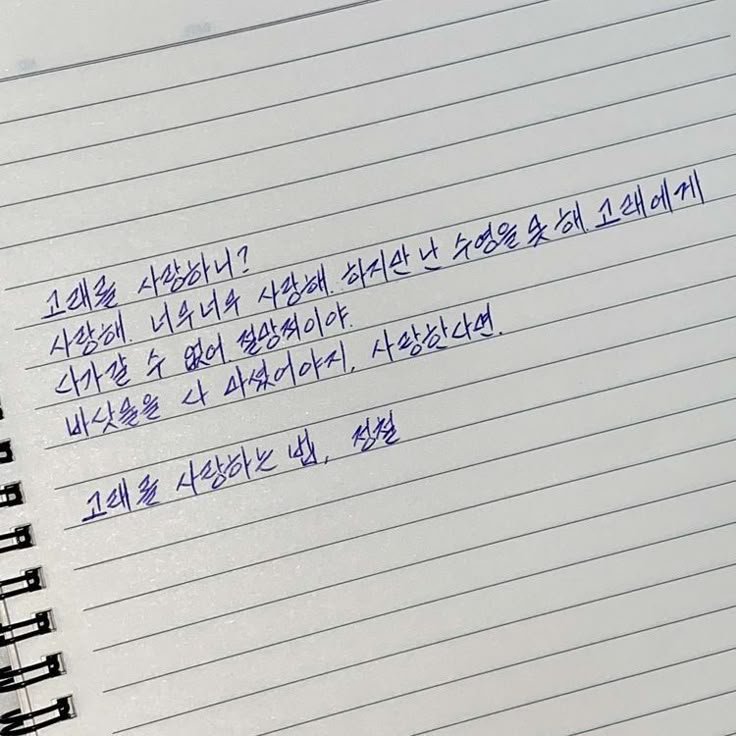 고래를 사랑하니?
사랑해. 너무너무 사랑해. 하지만 난 수영을 못 해. 고래에게
다가갈 수 없어 절망적이야.
바닷물을 다 마셨어야지, 사랑한다면.
고래를 사랑하는 법, 정철